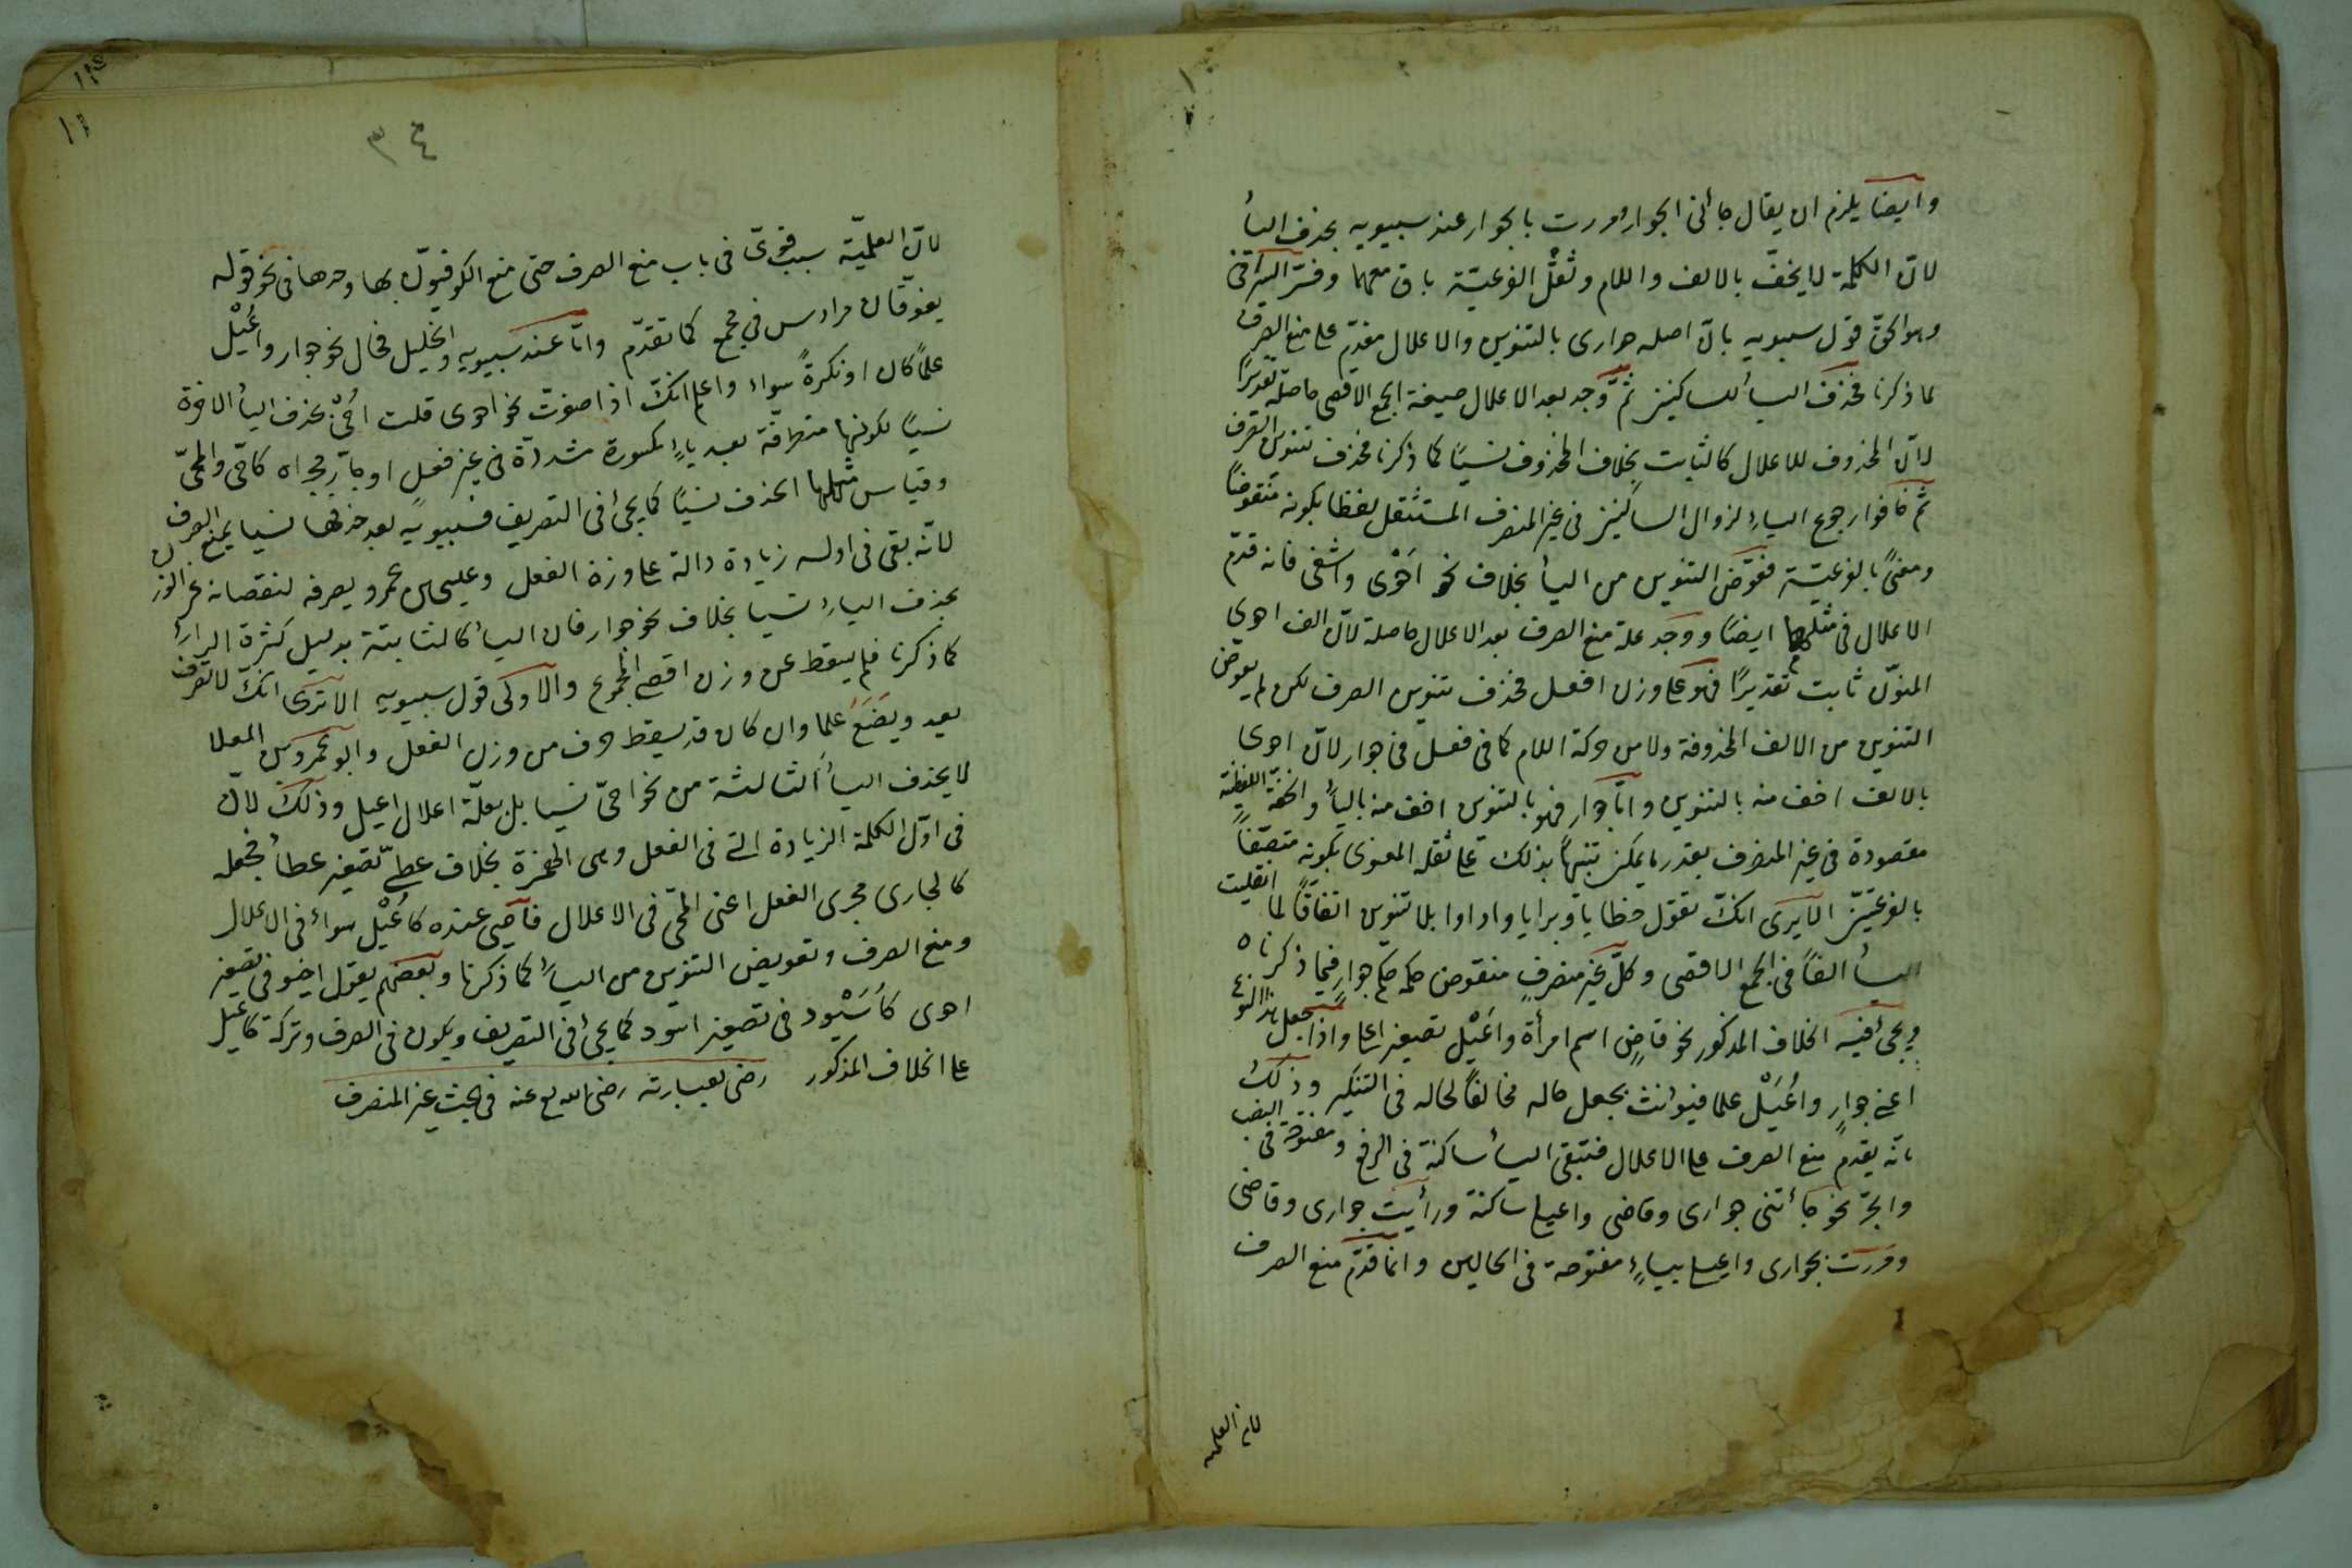 وايضا يلزم ان يقال جائنى الجوار ومررت بالجوار عند سيبويه بحذف اليأ
لانّ الكلمة لا يخفّ بالالف واللام وثقل الفرعيّة باق معهما وفسّر السيرافى
وهو الحق قول سيبويه بانّ اصله جوارى بالتنوين والاعلال مقدّم على منع الصرف
لما ذكرنا فحذف اليأ للساكنين ثمّ وجد بعد الاعلال صيغة الجمع الاقصى حاصلة تقديرًا
لانّ المحذوف للاعلال كالثابت بخلاف المحذوف نسيًا كما ذكرنا فحذف تنوين الصرف
ثمّ خافوا رجوع الياء لزوال الساكنين فى غير المنصرف المستثقل لفظا بكونه منقوصًا
ومعنىً بالفرعيّة فعوّض التنوين من اليأ بخلاف نحو احْوى واشقى فانه قدّم
الاعلال فى مثلهما ايضًا ووجد علة منع الصرف بعد الاعلال حاصلة لانّ الف احوى
المنوّن ثابت تقديرًا فهو على وزن افعل فحذف تنوين الصرف لكن لم يعوّض
التنوين من الالف المحذوفة ولا من حركة اللام كما فى فعل فى جوار لانّ احوى
بالالف اخف منه بالتنوين وامّا جوارٍ فهو بالتنوين اخف منه باليأ والخفّة اللفظيّة
مقصودة فى غير المنصرف بقدر ما يمكن تنبيهًا بذلك على ثقله المعنوى بكونه متصّفًا
بالفرعيّتين الا يرى انك تقول خطايا وبرايا واداوا بلا تنوين اتفاقًا لما انقلبت
اليأ الفًا فى الجمع الاقصى وكلّ غير منصرفٍ منقوص حكمه حكم جوارٍ فيما ذكرناه
ويجئ فيه الخلاف المذكور نحو قاضٍ اسم امرأة واعَيْلٍ تصغير اعلى واذا جعل هذا النوع
اعنى جوارٍ واُعَيْلٍ علما فيونس يجعل حاله مخالفًا لحاله فى التنكير وذلك
بانّه يقدم منع الصرف على الاعلال فتبقى اليأ ساكنة فى الرفع ومفتوحة فى النصب
والجرّ نحو جأتنى جوارى وقاضى واعيلى ساكنة ورأيت جوارى وقاضى
ومررت بجوارى واعيلى بياءٍ مفتوحة فى الحالين وانّما قدّم منع الصرف
لان العلمية
٣٤
لانّ العلميّة سبب قوىّ فى باب منع الصرف حتى منع الكوفيّون بها وحدها فى نحو قوله
يفوقان مرداس فى مجمع كما تقدّم وامّا عند سيبويه والخليل فحال نحو جوار واُعَيْل
علمًا كان او نكرةً سواء واعلم انك اذا صغّرت نحو احوى قلت اُحىّ بحذف اليأ الاخيرة
نسيًا لكونها متطرفة بعد ياءٍ مكسورة مشدّدة فى غير فعل او جارٍ مجراه كاحىّ والمحىّ
وقياس مثلها الحذف نسيًا كما يجئ فى التصريف فسيبويه بعد حذفها نسيا يمنع الصرف
لانّه بقى فى اوله زيادة دالة على وزن الفعل وعيسى بن عمرو يصرفه لنقصانه عن الوزن
بحذف الياء نسيا بخلاف نحو جوار فان اليأ كالثابتة بدليل كثرة الراء
كما ذكرنا فلم يسقط عن وزن اقصى الجموع والاولى قول سيبويه الا ترى انك لا تصرف
يعد ويضَعُ علما وان كان قد سقط حرف من وزن الفعل وابو عمرو بن العلا
لا يحذف اليأ الثالثة من نحو احىّ نسيا بل يعلّه اعلال اعيل وذلك لانّ
فى اوّل الكلمة الزيادة التى فى الفعل وهى الهمزة بخلاف عطىّ تصغير عطأ فجعله
كالجارى مجرى الفعل اعنى المحّى فى الاعلال فاحيى عنده كاُعَيْل سواء فى الاعلال
ومنع الصرف وتعويض التنوين من الياء كما ذكرنا وبعضهم يقول احيو فى تصغير
احوى كاُسَيْود فى تصغير اسود كما يجئ فى التصريف ويكون فى الصرف وتركه كاعيل
على الخلاف المذكور رضى بعبارته رضى الله عنه فى بحث غير المنصرف